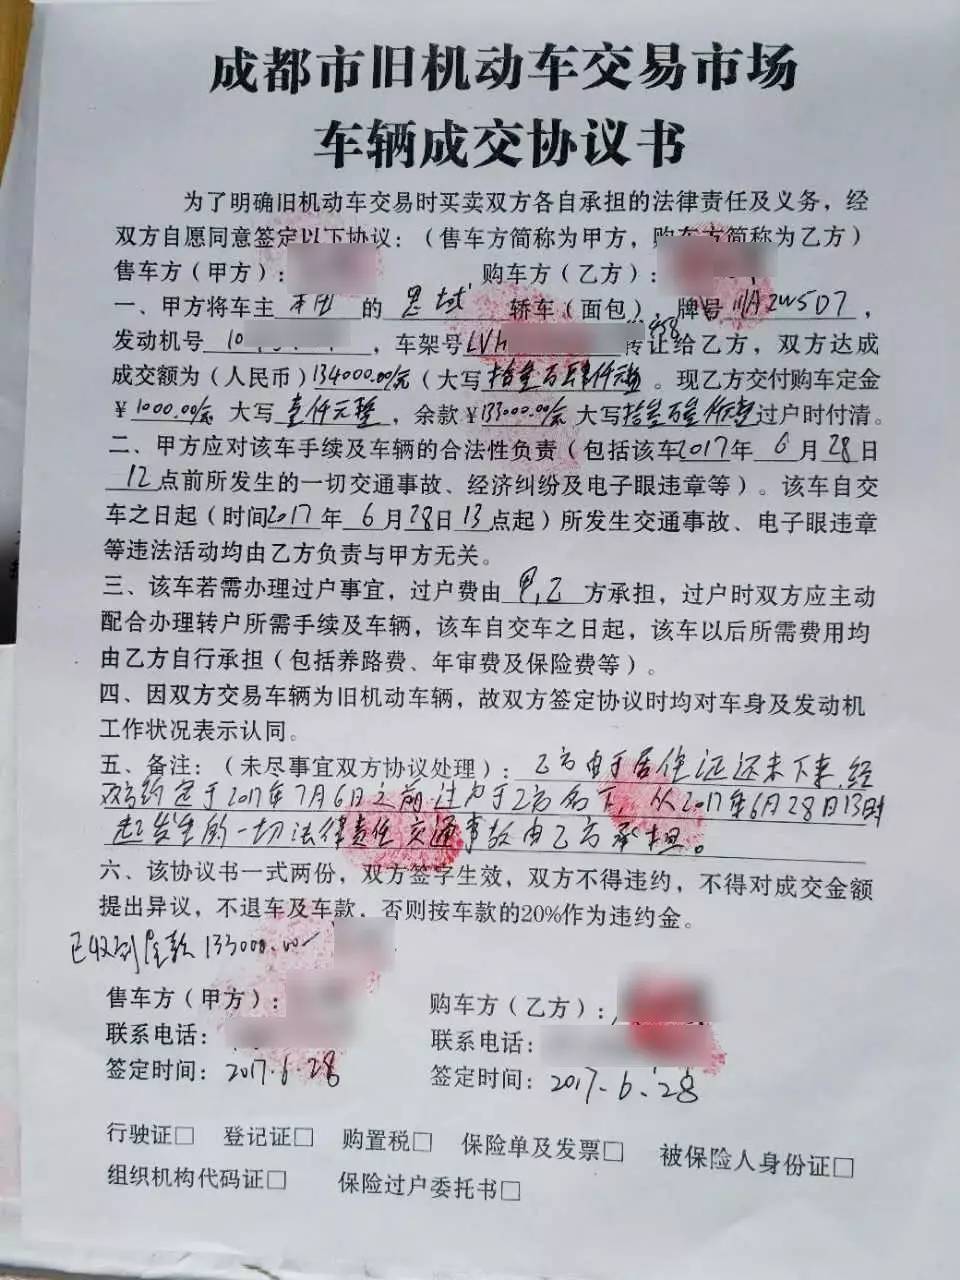 成都市旧机动车交易市场
车辆成交协议书
为了明确旧机动车交易时买卖双方各自承担的法律责任及义务，经
双方自愿同意签定以下协议：（售车方简称为甲方，购车方简称为乙方）
售车方（甲方）： 购车方（乙方）：
一、甲方将车主 本田 的 思域 轿车（面包），牌号 川A2W5D7，
发动机号 10 ，车架号 LVH 458 转让给乙方，双方达成
成交额为（人民币）134000.00/元（大写 拾叁万肆仟元整。现乙方交付购车定金
￥1000.00/元 大写 壹仟元整，余款￥133000.00/元 大写拾叁万叁仟元整过户时付清。
二、甲方应对该车手续及车辆的合法性负责（包括该车2017年 6 月 28 日
12 点前所发生的一切交通事故、经济纠纷及电子眼违章等）。该车自交
车之日起（时间2017年 6 月28日13点起）所发生交通事故、电子眼违章
等违法活动均由乙方负责与甲方无关。
三、该车若需办理过户事宜，过户费由 甲,乙 方承担，过户时双方应主动
配合办理转户所需手续及车辆，该车自交车之日起，该车以后所需费用均
由乙方自行承担（包括养路费、年审费及保险费等）。
四、因双方交易车辆为旧机动车辆，故双方签定协议时均对车身及发动机
工作状况表示认同。
五、备注：（未尽事宜双方协议处理）：乙方由于居住证还未下来，经
双方约定于2017年7月6日之前过户于乙方名下，从2017年6月28日13时
起发生的一切法律责任交通事故由乙方承担。
六、该协议书一式两份，双方签字生效，双方不得违约，不得对成交金额
提出异议，不退车及车款，否则按车款的20%作为违约金。
已收到全款133000.00
售车方（甲方）： 购车方（乙方）：
联系电话： 联系电话：
签定时间：2017.6.28 签定时间：2017.6.28
行驶证□ 登记证□ 购置税□ 保险单及发票□ 被保险人身份证□
组织机构代码证□ 保险过户委托书□